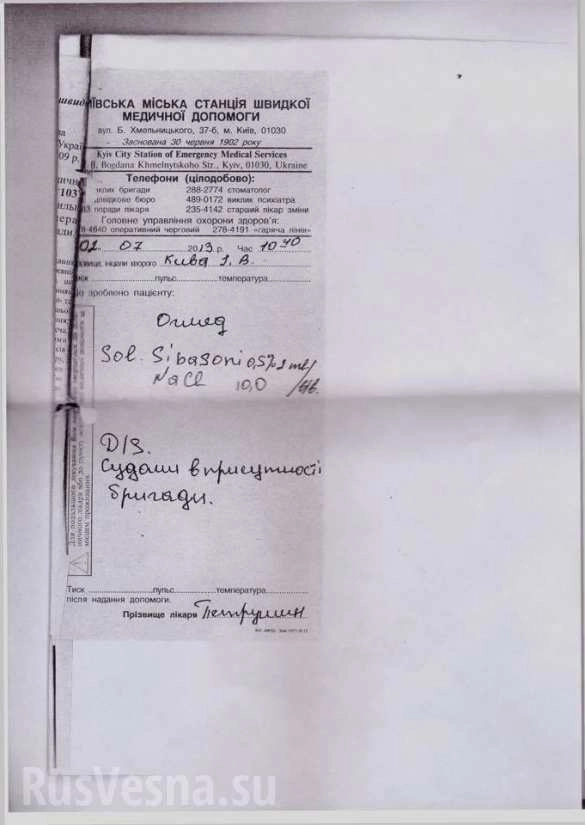 ИЇВСЬКА МІСЬКА СТАНЦІЯ ШВИДКОЇ
МЕДИЧНОЇ ДОПОМОГИ
вул. Б. Хмельницького, 37-б, м. Київ, 01030
Заснована 30 червня 1902 року
Kyiv City Station of Emergency Medical Services
B, Bogdana Khmelnytskoho Str., Kyiv, 01030, Ukraine
Телефони (цілодобово):
клик бригади 288-2774 стоматолог
відкове бюро 489-0172 виклик психіатра
поради лікаря 235-4142 старший лікар зміни
Головне управління охорони здоров'я:
8-4640 оперативний черговий 278-4191 «гаряча лінія»
02 07 2013 р. Час 10 40
ізвище, ініціали хворого Кива І. В.
Тиск пульс температура
о зроблено пацієнту:
Огляд
Sol. Sibasoni 0,5% 2 ml
NaCl 10,0 /в/в.
D/S.
Судоми в присутності
бригади.
Тиск пульс температура
після надання допомоги.
Прізвище лікаря Петрушин
швид
103
Для подальшого лікування Вам
місцем проживання.
RusVesna.su